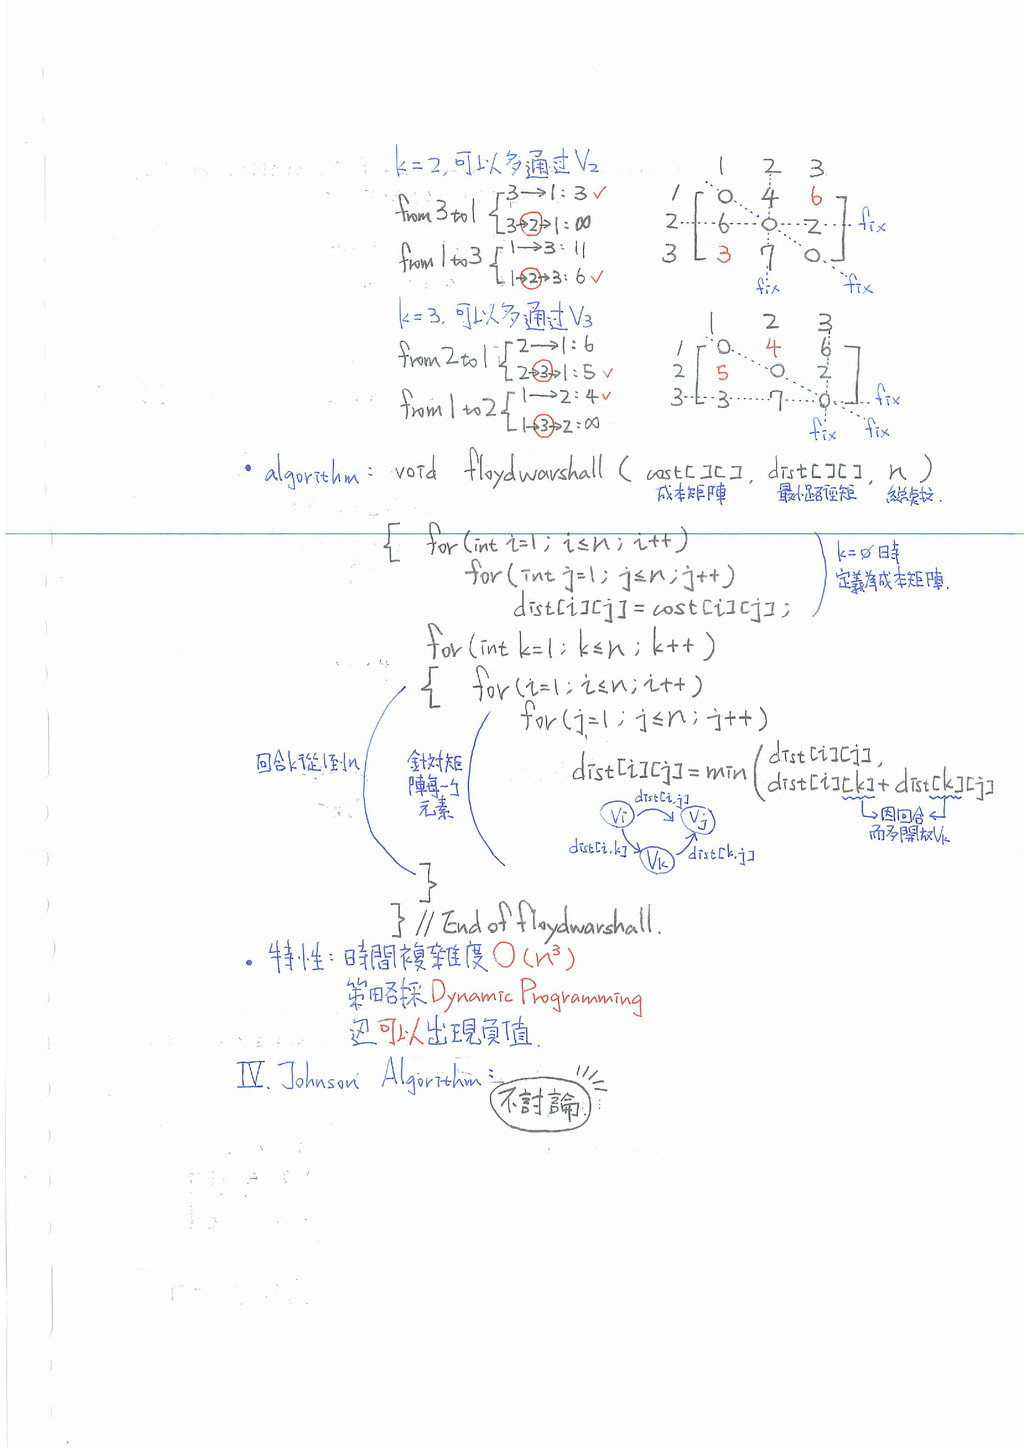 k=2, 可以多通过V2
from 3 to 1 { 3→1: 3 ✓
3→2→1: ∞
from 1 to 3 { 1→3: 11
1→2→3: 6 ✓
1 2 3
1 0 4 6
2 6 0 2 fix
3 3 7 0
fix fix
k=3, 可以多通过V3
from 2 to 1 { 2→1: 6
2→3→1: 5 ✓
from 1 to 2 { 1→2: 4 ✓
1→3→2: ∞
1 2 3
1 0 4 6
2 5 0 2
3 3 7 0 fix
fix fix
• algorithm: void floydwarshall ( cost[][], dist[][], n )
成本矩陣 最小路徑矩 總點數.
{ for(int i=1; i≤n; i++)
for(int j=1; j≤n; j++)
dist[i][j] = cost[i][j];
k=ø時
定義為成本矩陣.
for(int k=1; k≤n; k++)
{ for(i=1; i≤n; i++)
for(j=1; j≤n; j++)
dist[i][j] = min( dist[i][j],
dist[i][k] + dist[k][j]
回合k從1到n
針對矩
陣每一個
元素
因回合
而多開放Vk
dist[i,j]
Vi Vj
dist[i,k] Vk dist[k,j]
}
} // End of floydwarshall.
• 特性: 時間複雜度 O(n³)
策略採 Dynamic Programming
可以出現負值.
IV. Johnson Algorithm:
不討論.